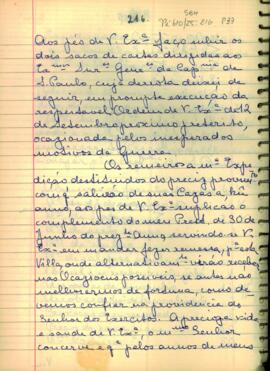 216.
P33
Aos pés de V. Exª faço subir os
dois sacos de cartas dirigidas ao
S. Paulo, cuja derrota deixei de
seguir, em prompta execução da
respeitavel Ordem de V. Exª de 12
de Setembro proximo preterito,
ocazionada pelos inesperados
motivos da Guerra.
Os remeiros a mª Expe
dição destituidos do precizo
com q̃ sahirão de suas Cazas a hũ
anno, aos pés de V. Exª supplico o
complemento do meu Pred. de 30 de
Junho do prez.º Anno, servindo-se V.
Exª em mandar fazer remessa, pª esta
Villa, onde alternativamte virão receber,
nas Ocazioens possiveis, se antes não
melhorarmos de fortuna, como de
vemos confiar na providencia do
Senhor dos Exercitos. A precioza vida
e saude de V. Exª, o mmo Senhor
concerve e gᵉ pelos annos de meus